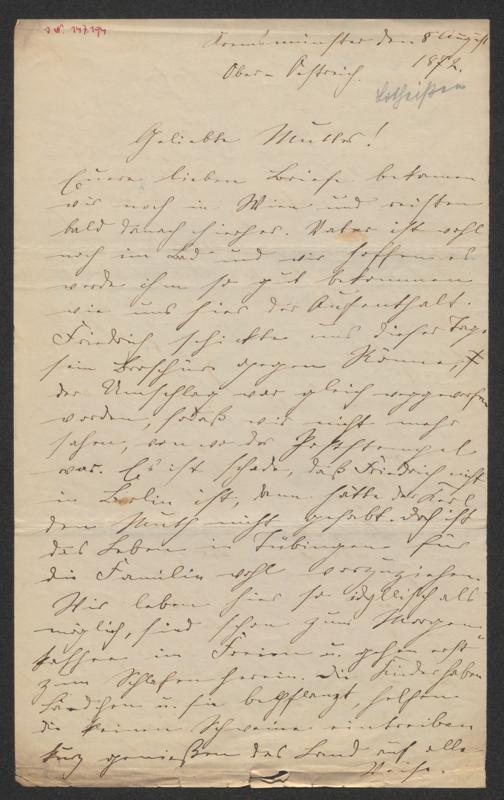 I. N. 147.194
Kremsmünster den 8 August
1872.
Ober-Östreich.
Lotheißen
Geliebte Mutter!
Euere lieben Briefe bekamen
wir noch in Wien und reisten
bald danach hierher. Vater ist wohl
noch im Bad und wir hoffen es
werde ihm so gut bekommen
wie uns hier der Aufenthalt.
Friedrich schickte uns dieser Tage
sein Broschüre gegen
der Umschlag war gleich weggeworfen
worden, sodaß wir nicht mehr
sahen, von wo der Poststempel
war. Es ist schade, daß Friedrich nicht
in Berlin ist, dann hätte der Kerl
den Muth nicht gehabt. Doch ist
das Leben in Tübingen für
die Familie wohl vorzuziehen.
Wir leben hier so idyllisch als
möglich, sind schon zum Morgen
kaffee im Freien u. gehen erst
zum Schlafen herein. Die Kinder haben
u. sie bepflanzt, helfen
die kleinen Schweine eintreiben
kurz genießen das Land auf alle
Weise.